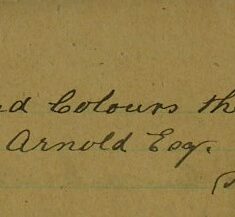 nd Colours th
Arnold Esq.